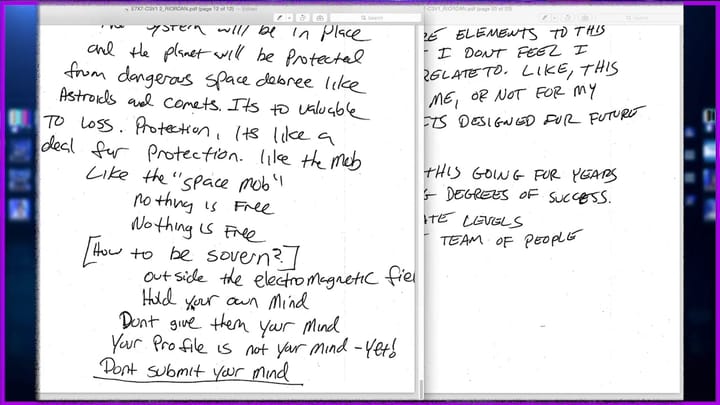 E7X7-CSV1 2_RIORDAN.pdf (page 12 of 12)
Search
Search
The system will be in place
and the planet will be Protected
from dangerous space debree like
Astroids and Comets. Its to valuable
To Loss. Protection, Its like a
deal for Protection. like the Mob
Like the "space Mob"!
Nothing is Free
Nothing is Free
[How to be sovern?]
outside the electromagnetic fiel
Hold your own Mind
Dont give them your Mind
Your Profile is not your mind - Yet!
Dont submit your mind
RE ELEMENTS TO THIS
I DONT FEEL I
RELATE TO. LIKE, THIS
ME, OR NOT FOR MY
TS DESIGNED FUR FUTURE
THIS GOING FOR YEARS
G DEGREES OF SUCCESS.
ATE LEVELS
TEAM OF PEOPLE